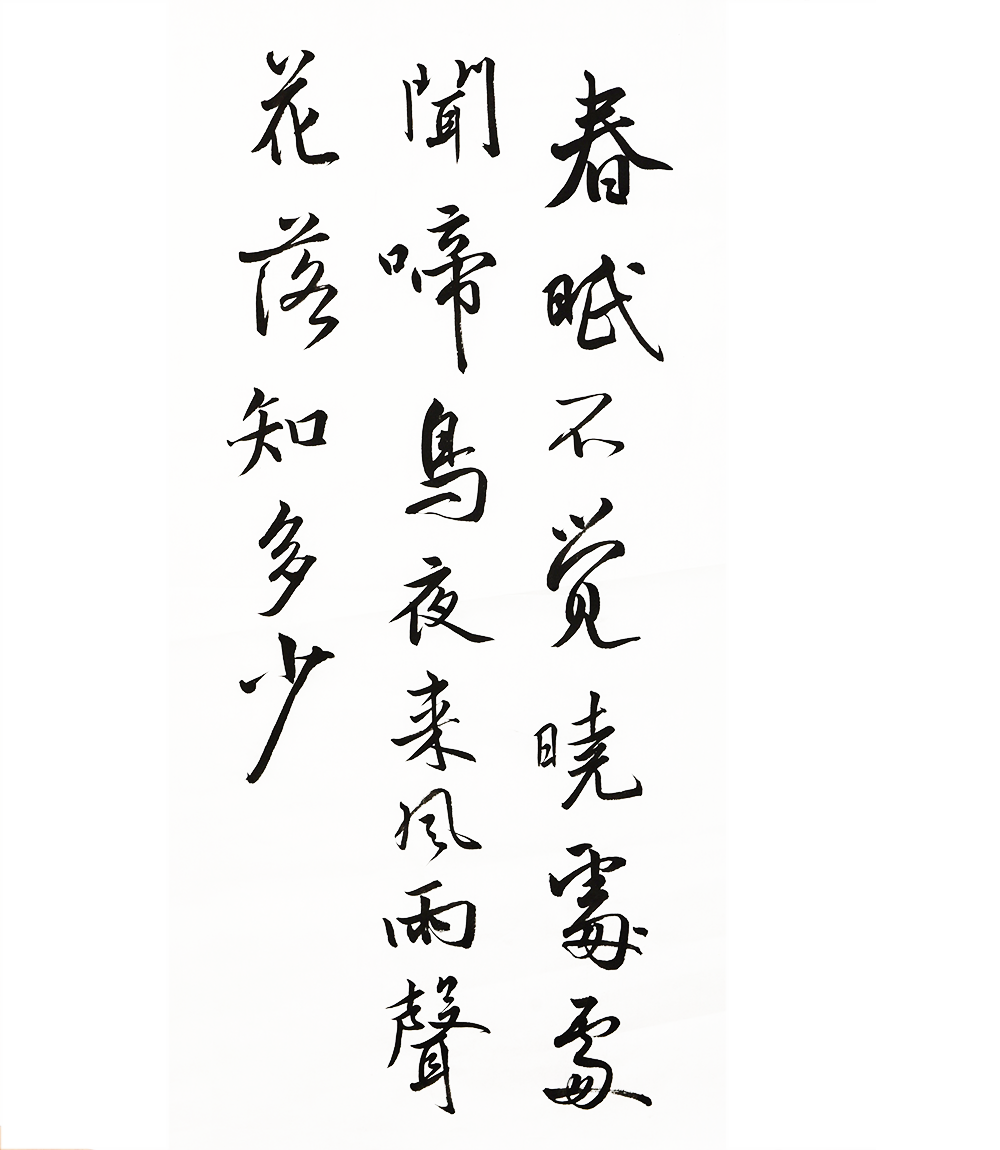 春眠不觉晓處處
聞啼鳥夜来风雨聲
花落知多少